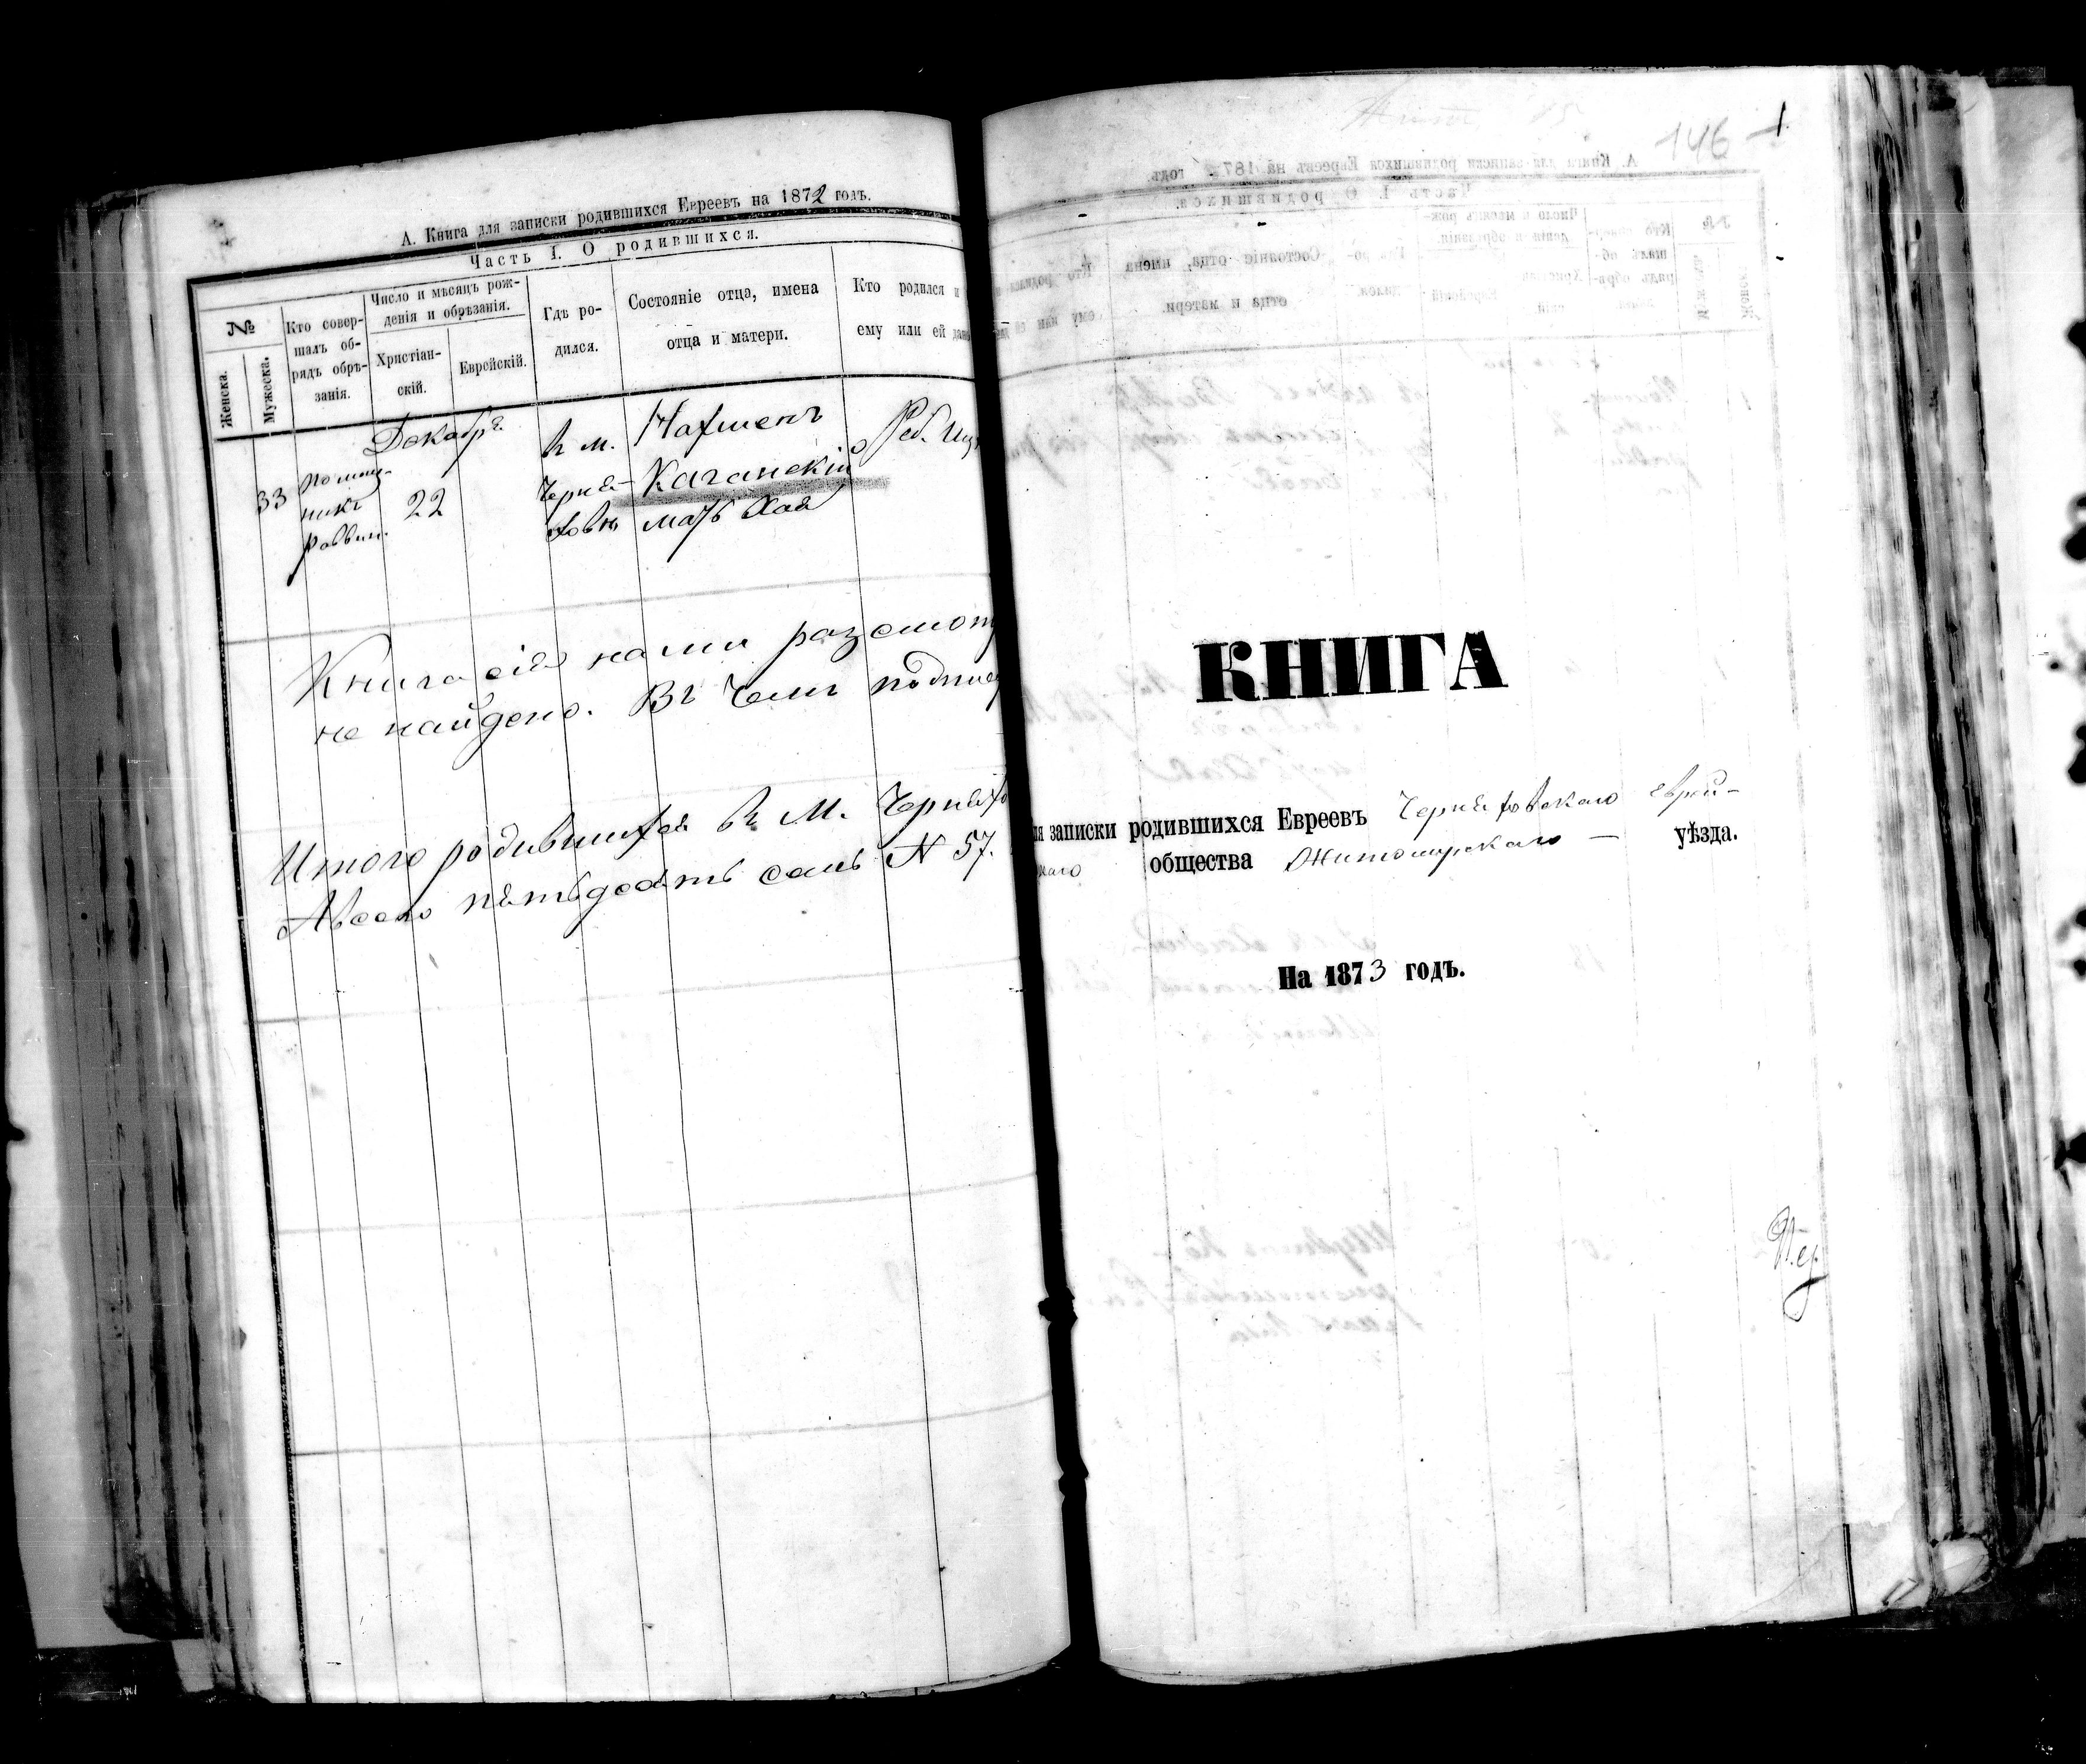 А. Книга для записки родившихся Евреевъ на 1872 годъ.
Часть I. О родившихся.
№
Женска.
Мужеска.
Кто совер-
шалъ об-
рядъ обрѣ-
занія.
Число и мѣсяцъ рож-
денія и обрѣзанія.
Христіан-
скій.
Еврейскій.
Гдѣ ро-
дился.
Состояніе отца, имена
отца и матери.
Кто родился и
ему или ей дано
Декабрѣ
33
помощ-
никъ
раввин.
22
въ м.
Черня-
ховѣ
Нахменъ
Каганскій
мать Хая
Реб. Иц
Книга сія нами разсмотр
не найдено. Въ чемъ подпис
Итого родившихся въ М. Черняхо
Авсего пятьдесять семь N 57.
146
1.
КНИГА
для записки родившихся Евреевъ Черняховскаго еврей-
скаго общества Житомирскаго — уѣзда.
На 1873 годъ.